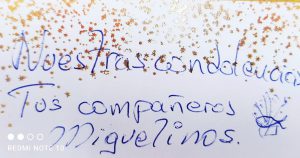 Nuestras condolencias
Tus compañeros
Miguelinos.
REDMI NOTE 10